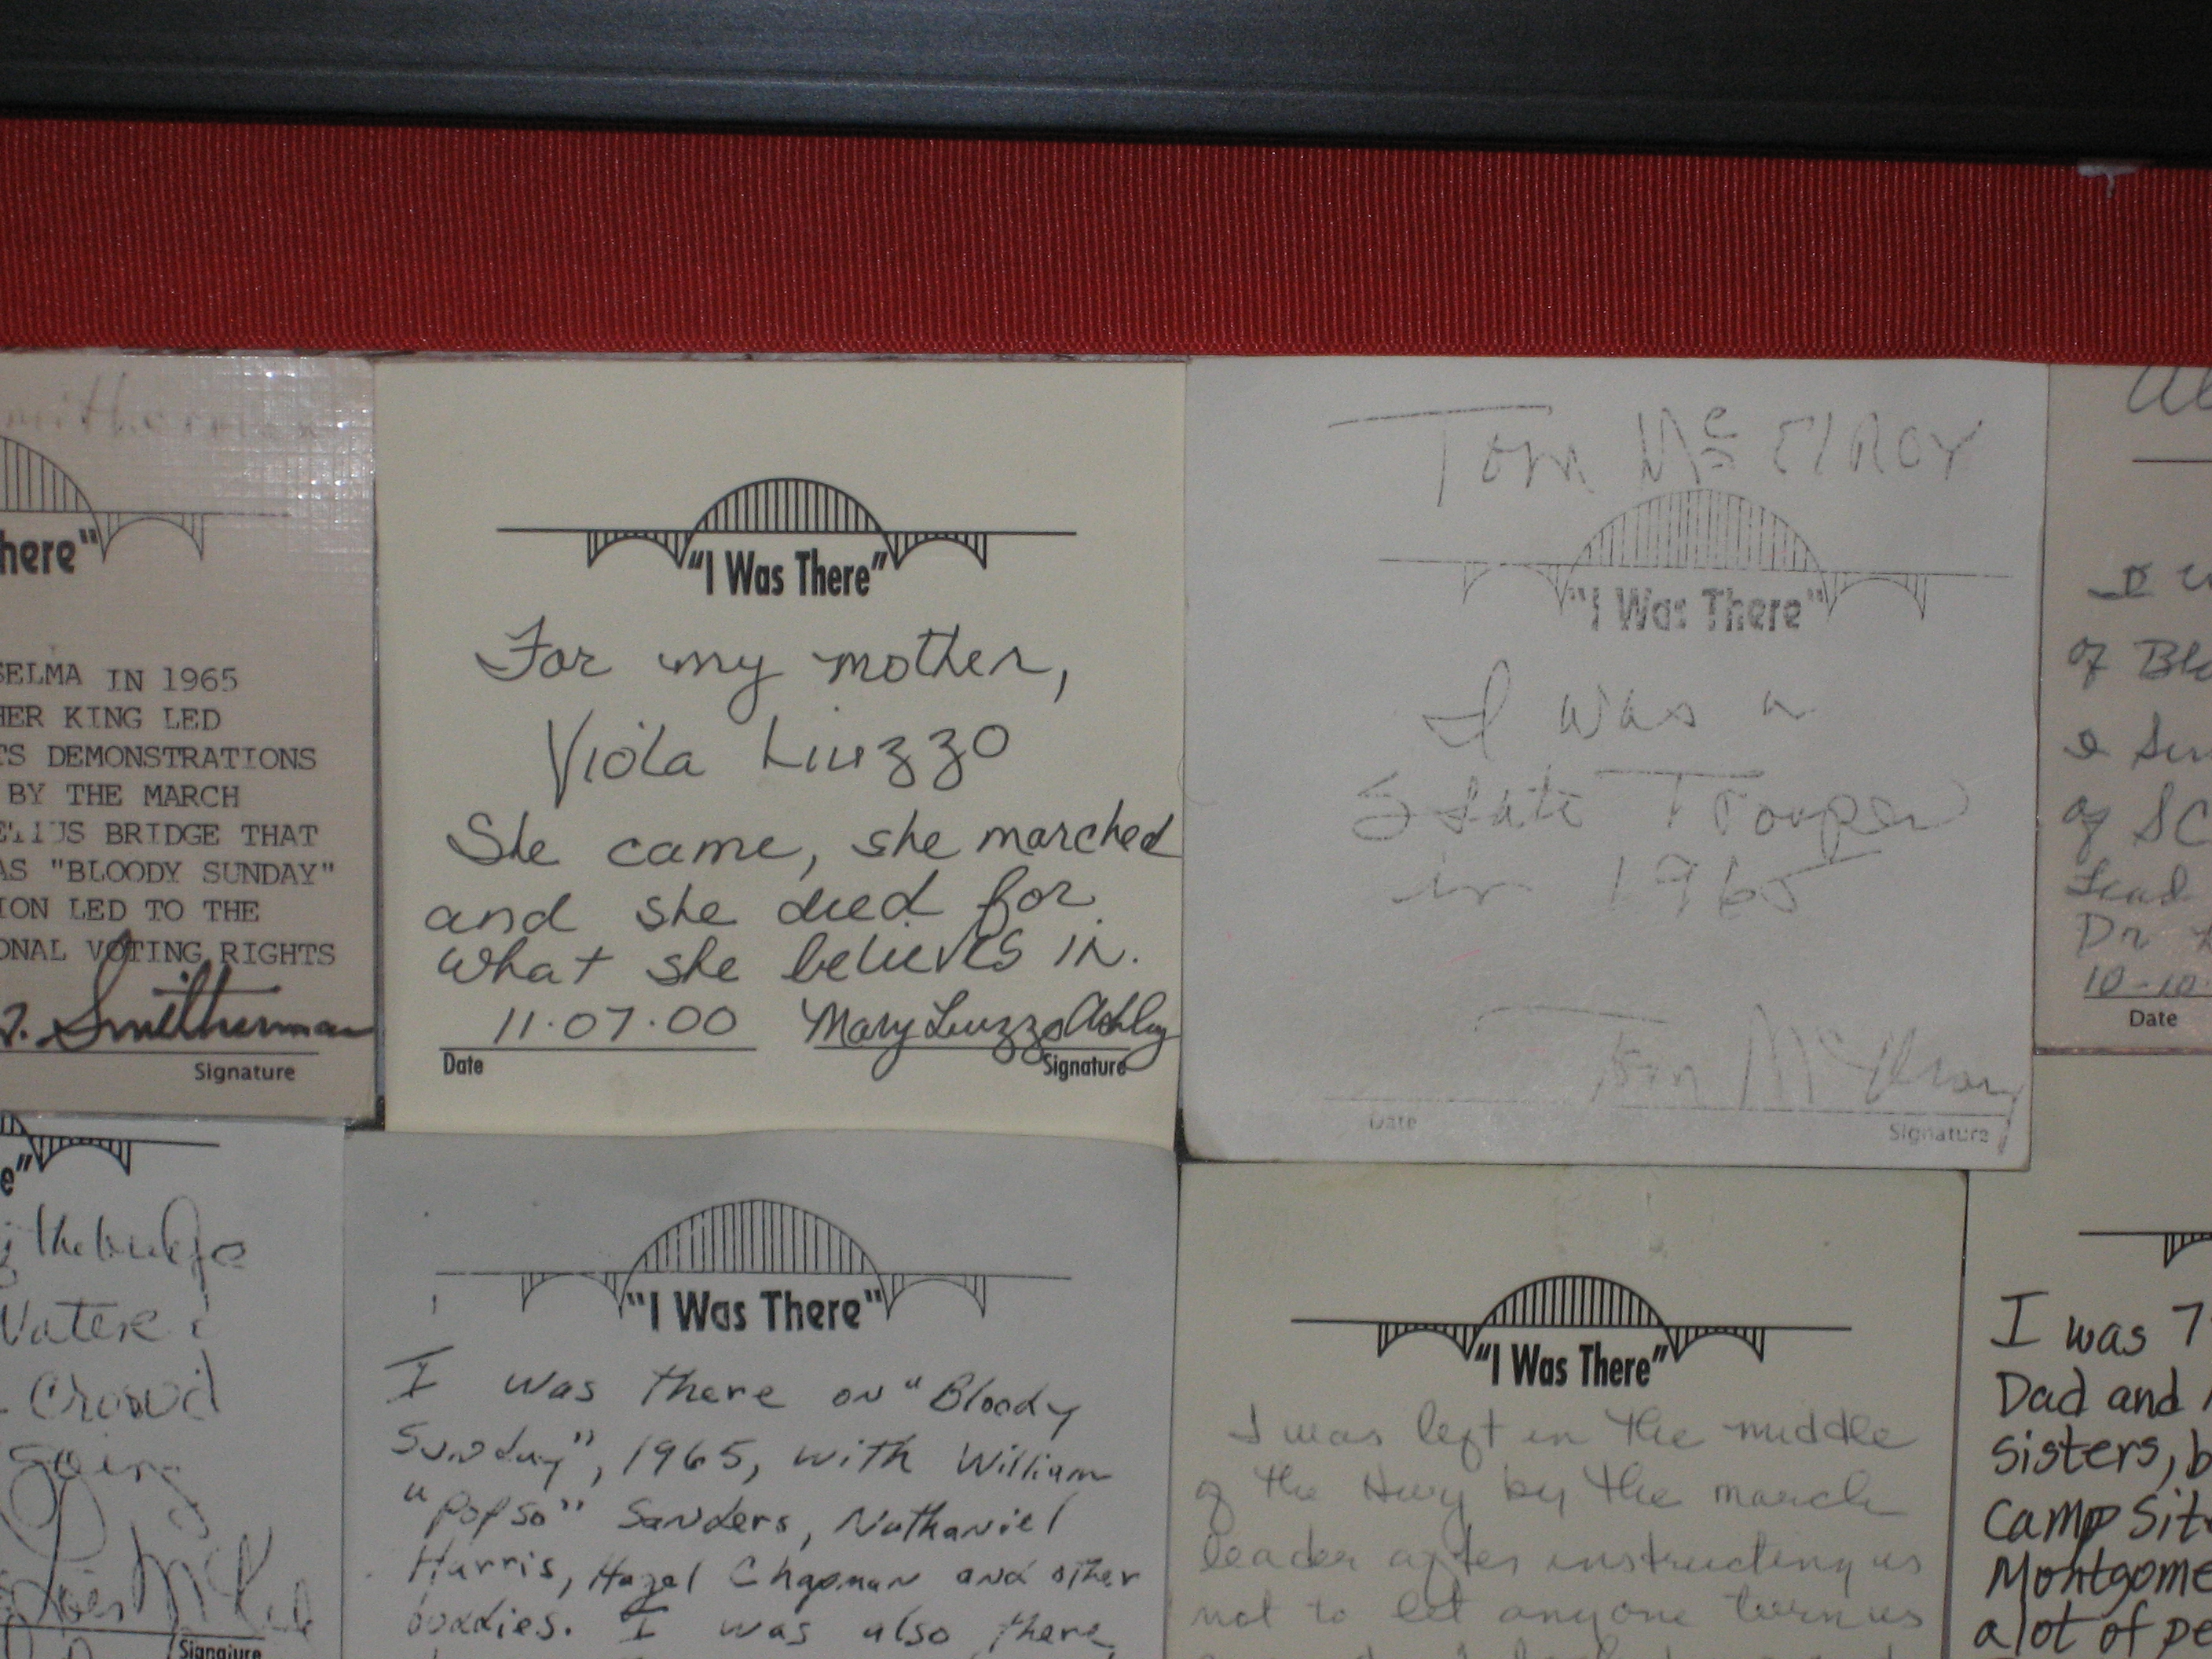 here"
SELMA IN 1965
HER KING LED
TS DEMONSTRATIONS
BY THE MARCH
BRIDGE THAT
AS "BLOODY SUNDAY"
ION LED TO THE
ONAL VOTING RIGHTS
Smitherman
Signature
"I Was There"
For my mother,
Viola Liuzzo
She came, she marched
and she died for
what she believes in.
11.07.00 Mary Liuzzo Ashley
Date Signature
Tom Mc ElRoy
"I Was There"
I was a
State Trooper
in 1965
Tom McElroy
Date Signature
of
of SC
Lead
Dr
10-10-
Date
e"
Crowd
going
Signature
"I Was There"
I was there on "Bloody
Sunday", 1965, with William
"Popso" Sanders, Nathaniel
Harris, Hazel Chapman and other
buddies. I was also there
"I Was There"
I was left in the middle
of the Hwy by the march
leader after instructing us
not to let anyone turn us
I was 7
Dad and
Sisters, b
Camp Sit
Montgome
a lot of pe